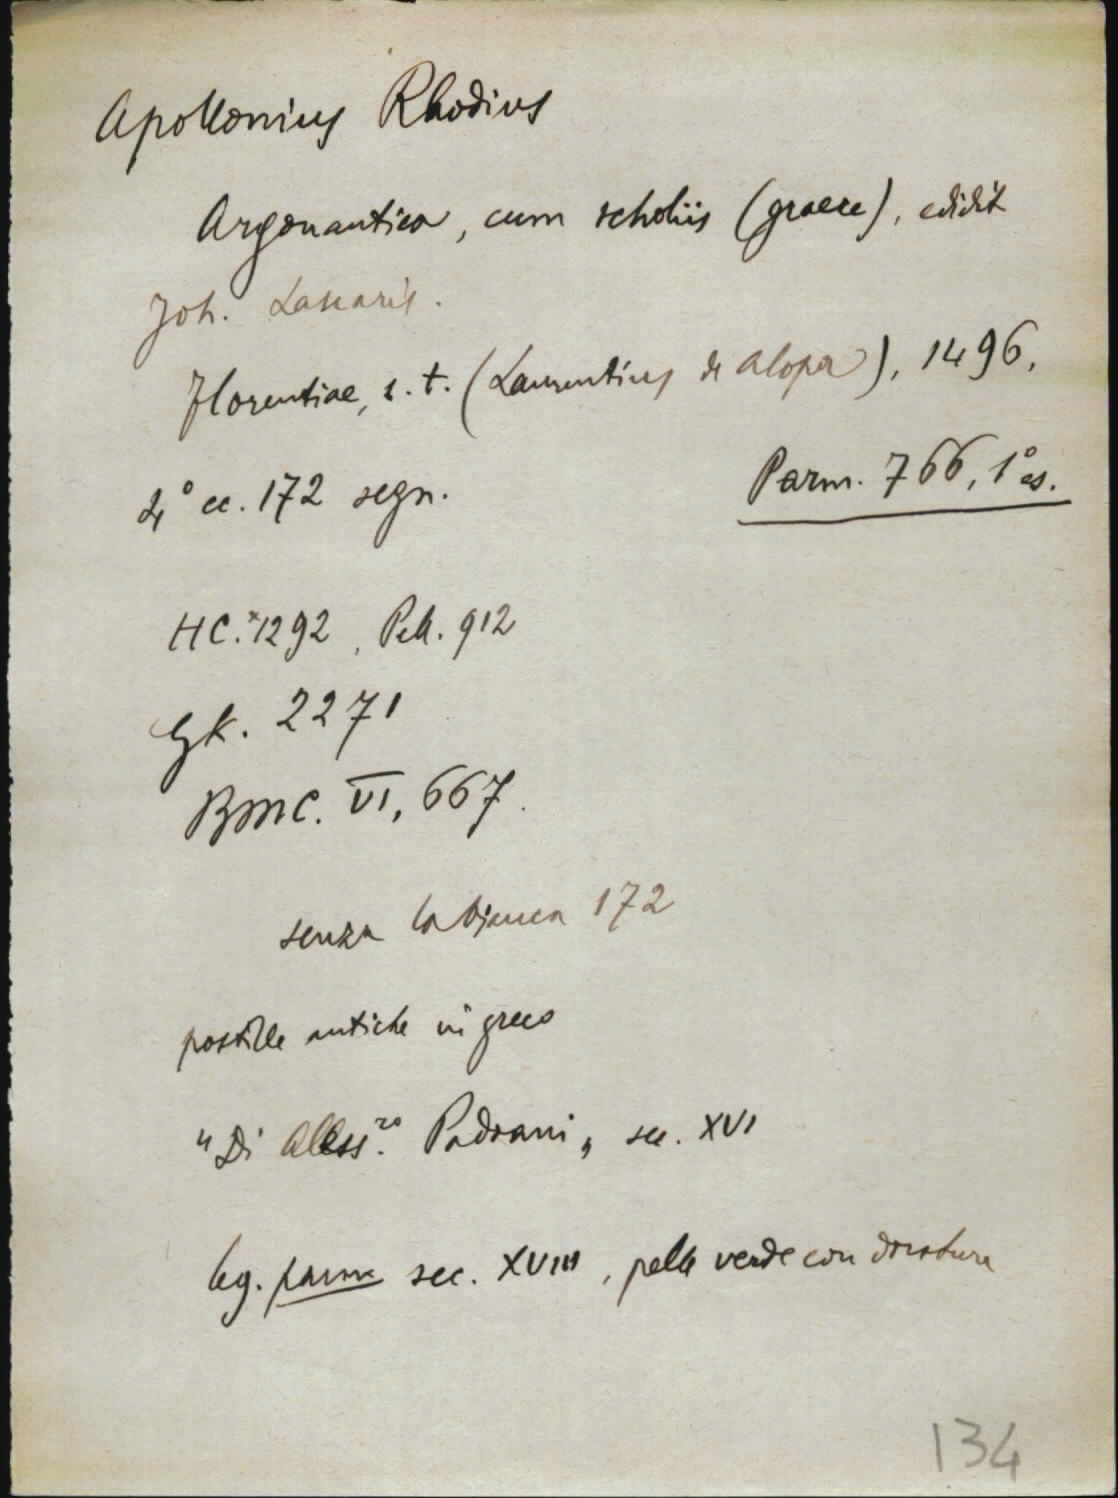 Apollonius Rhodius
Argonautica, cum scholiis (graece), edidit
Joh. Lascaris.
Florentiae, s. t. (Laurentius de Alopa), 1496,
4° cc. 172 segn.
Parm. 766, 1° es.
HC.*1292, Pell. 912
Gk. 2271
BMC. VI, 667.
senza la bianca 172
postille antiche in greco
"Di Aless.ro Padoani„ sec. XVI
leg. parm sec. XVIII, pelle verde con dorature
134